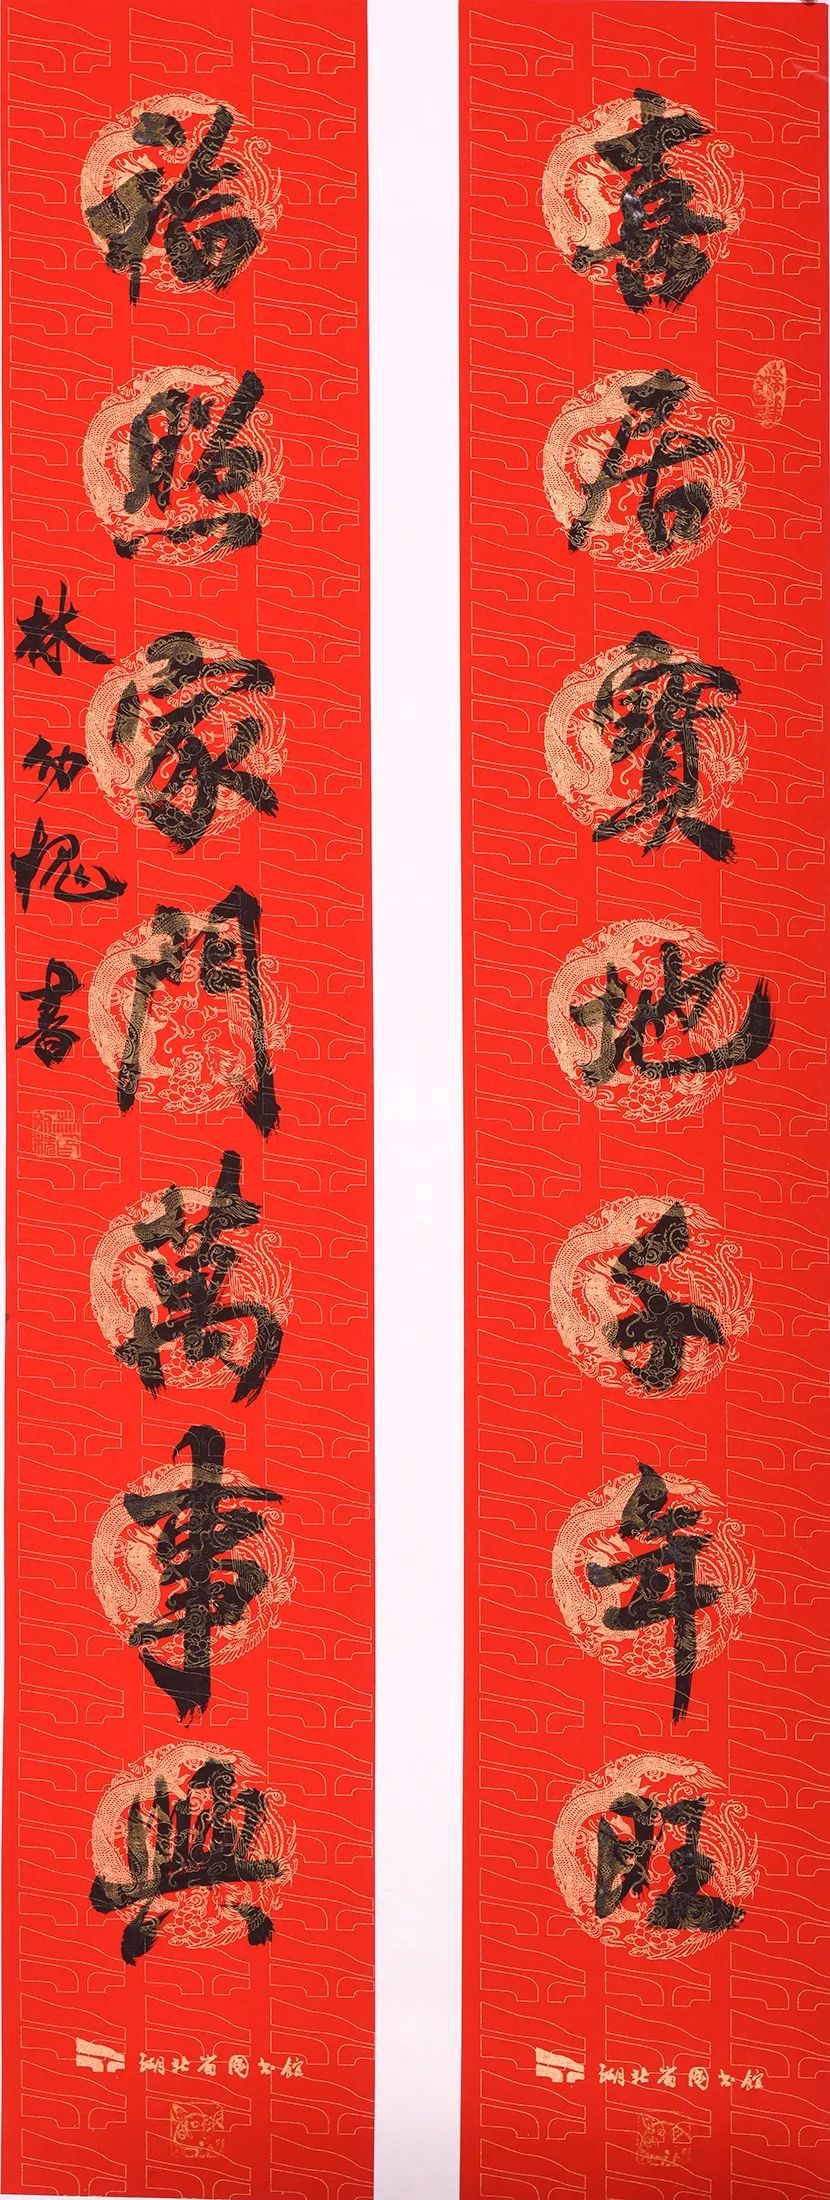 喜居寳地千年旺
福照家門萬事興
林少愧書
湖北省图书馆
湖北省图书馆